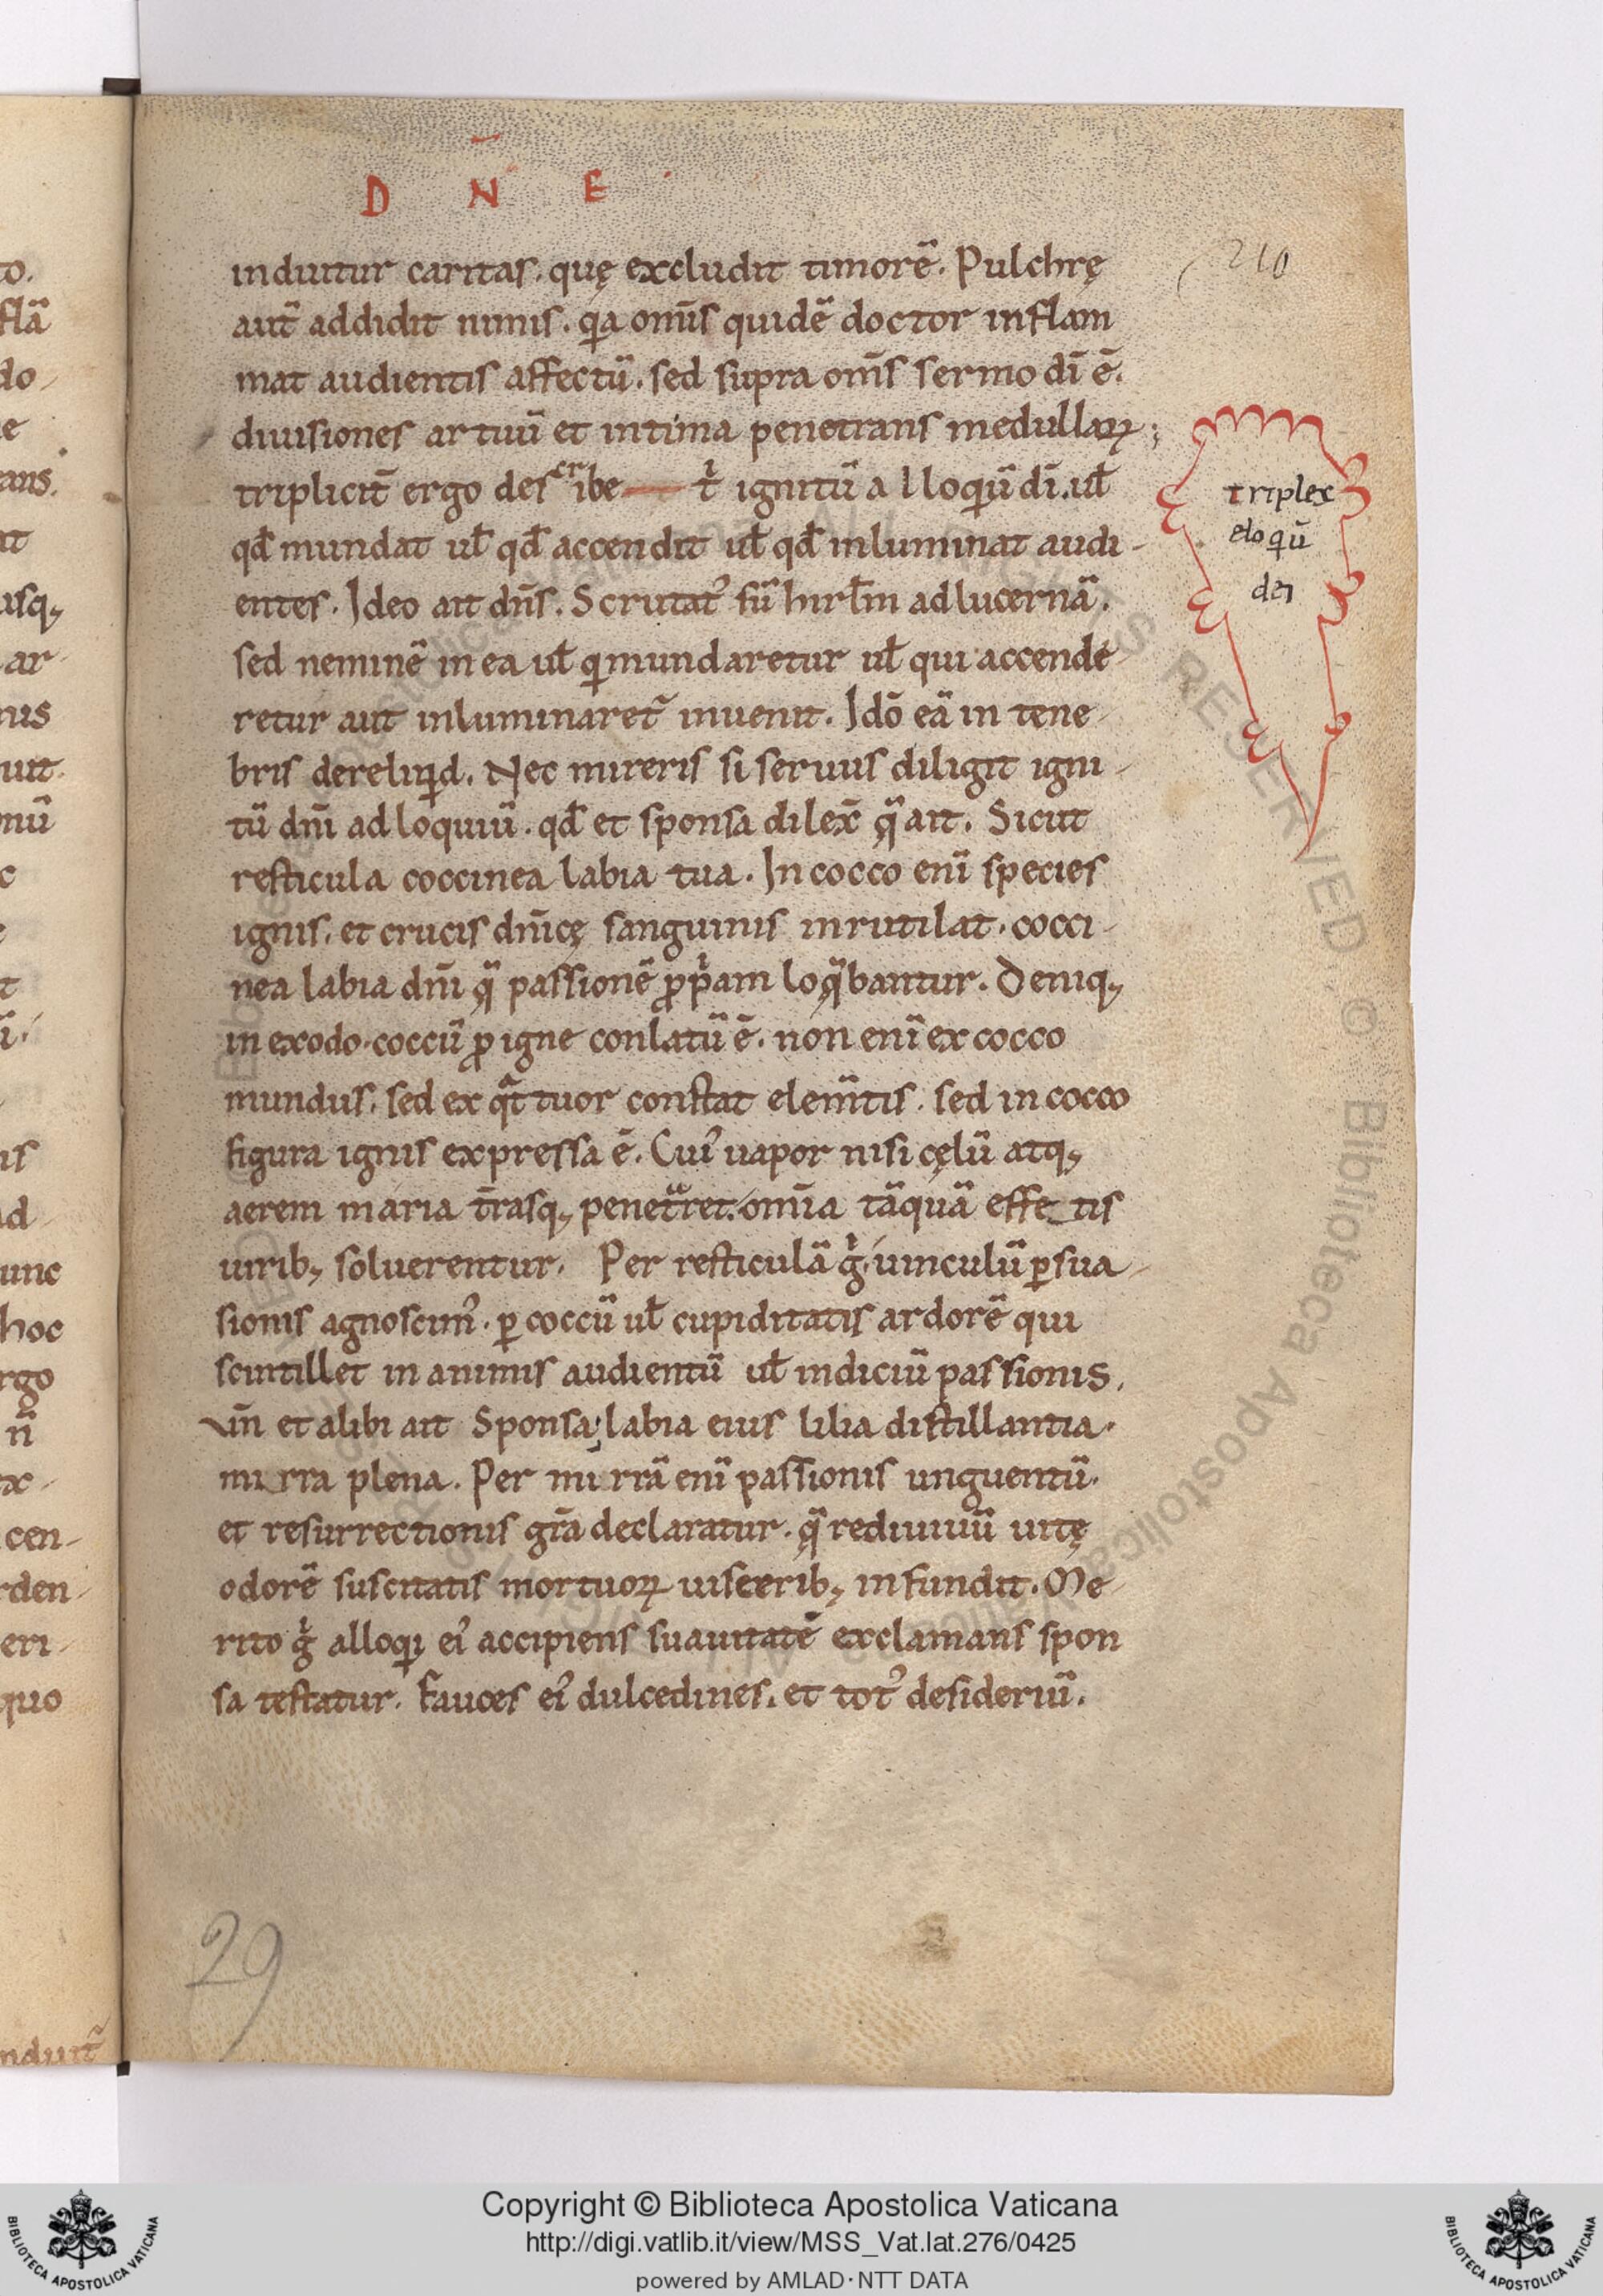 D N̄ E
210
induitur caritas. quę excludit timorē. Pulchrę
aut̄ addidit nimis. qa om̄is quidē doctor inflam
mat audientis affectū. sed supra om̄s sermo dī ē.
diuisiones artuū et intima penetrans medullaꝝ;
triplicit̄ ergo describe t̄ ignitū alloqiū dī. ul̄
qd̄ mundat ul̄ qd̄ accendit ul̄ qd̄ inluminat audi-
entes. Ideo ait dn̄s. Scrutat᷒ sū hirl̄m ad lucernā.
sed neminē in ea ul̄ qi mundaretur ul̄ qui accende-
retur aut inluminaret᷒ inuenit. Idō eā in tene-
bris dereliqid. Nec mireris si seruus diligit igni-
tū dn̄i adloquiū. qd̄ et sponsa dilex̄ q̄ ait. Sicut
resticula coccinea labia tua. In cocco enī species
ignis. et crucis dn̄icę sanguinis inrutilat. cocci-
nea labia dn̄i q̄ passionē ꝓpam loq̄bantur. Deniq;
in exodo. coccū ꝓ igne conlatū ē. non enī ex cocco
mundus. sed ex qattuor constat elem̄tis. sed in cocco
figura ignis expressa ē. Cui᷒ uapor nisi cęlū atq;
aerem maria t̄rasq; penetraret. om̄ia tāquā effetis
uirib; soluerentur. Per resticulā g̊ uinculū ꝑsua-
sionis agnoscim᷒. ꝑ coccū ul̄ cupiditatis ardorē qui
scintillet in animis audientū ul̄ indiciū passionis.
un̄ et alibi ait Sponsa; labia eius lilia distillantia.
mirra plena. Per mirrā enī passionis unguentū.
et resurrectionis gr̄a declaratur. q̄ rediuiuū uitę
odorē suscitatis mortuoꝝ uisceribus; infundit. Me-
rito g̊ alloqi ei᷒ accipiens suauitatē exclamans spon
sa testatur. Fauces ei᷒ dulcedines. et tot᷒ desideriū.
triplex
eloqiū
dei
29
Copyright © Biblioteca Apostolica Vaticana
http://digi.vatlib.it/view/MSS_Vat.lat.276/0425
powered by AMLAD·NTT DATA